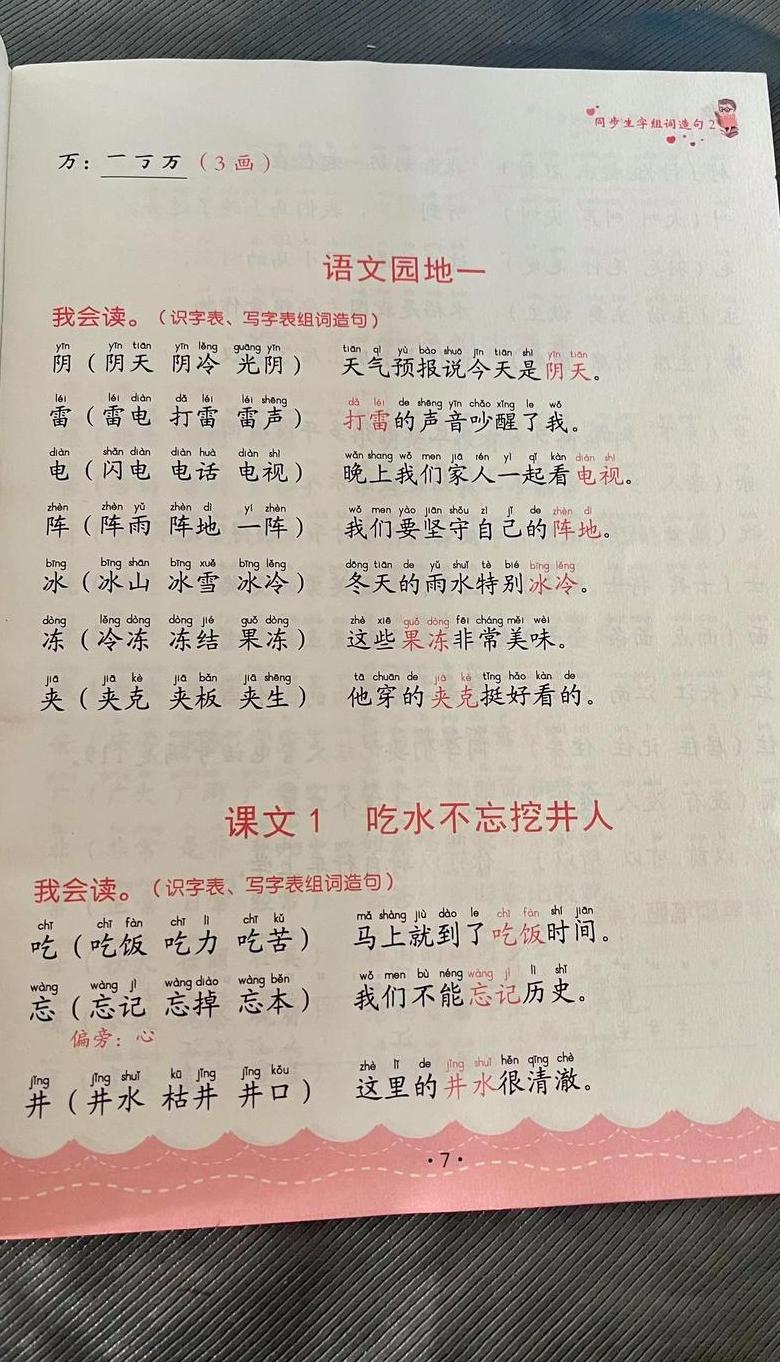 同步生字组词造句 2
万：一 丂 万（3画）
语文园地一
我会读。（识字表、写字表组词造句）
yīn yīn tiān yīn lěng guāng yīn tiān qì yù bào shuō jīn tiān shì yīn tiān
阴（阴天 阴冷 光阴） 天气预报说今天是阴天。
léi léi diàn dǎ léi léi shēng dǎ léi de shēng yīn chǎo xǐng le wǒ
雷（雷电 打雷 雷声） 打雷的声音吵醒了我。
diàn shǎn diàn diàn huà diàn shì wǎn shang wǒ men jiā rén yì qǐ kàn diàn shì
电（闪电 电话 电视） 晚上我们家人一起看电视。
zhèn zhèn yǔ zhèn dì yí zhèn wǒ men yào jiān shǒu zì jǐ de zhèn dì
阵（阵雨 阵地 一阵） 我们要坚守自己的阵地。
bīng bīng shān bīng xuě bīng lěng dōng tiān de yǔ shuǐ tè bié bīng lěng
冰（冰山 冰雪 冰冷） 冬天的雨水特别冰冷。
dòng lěng dòng dòng jié guǒ dòng zhè xiē guǒ dòng fēi cháng měi wèi
冻（冷冻 冻结 果冻） 这些果冻非常美味。
jiā jiā kè jiā bǎn jiā shēng tā chuān de jiā kè tǐng hǎo kàn de
夹（夹克 夹板 夹生） 他穿的夹克挺好看的。
课文1 吃水不忘挖井人
我会读。（识字表、写字表组词造句）
chī chī fàn chī lì chī kǔ mǎ shàng jiù dào le chī fàn shí jiān
吃（吃饭 吃力 吃苦） 马上就到了吃饭时间。
wàng wàng jì wàng diào wàng běn wǒ men bù néng wàng jì lì shǐ
忘（忘记 忘掉 忘本） 我们不能忘记历史。
偏旁：心
jǐng jǐng shuǐ kū jǐng jǐng kǒu zhè lǐ de jǐng shuǐ hěn qīng chè
井（井水 枯井 井口） 这里的井水很清澈。
·7·